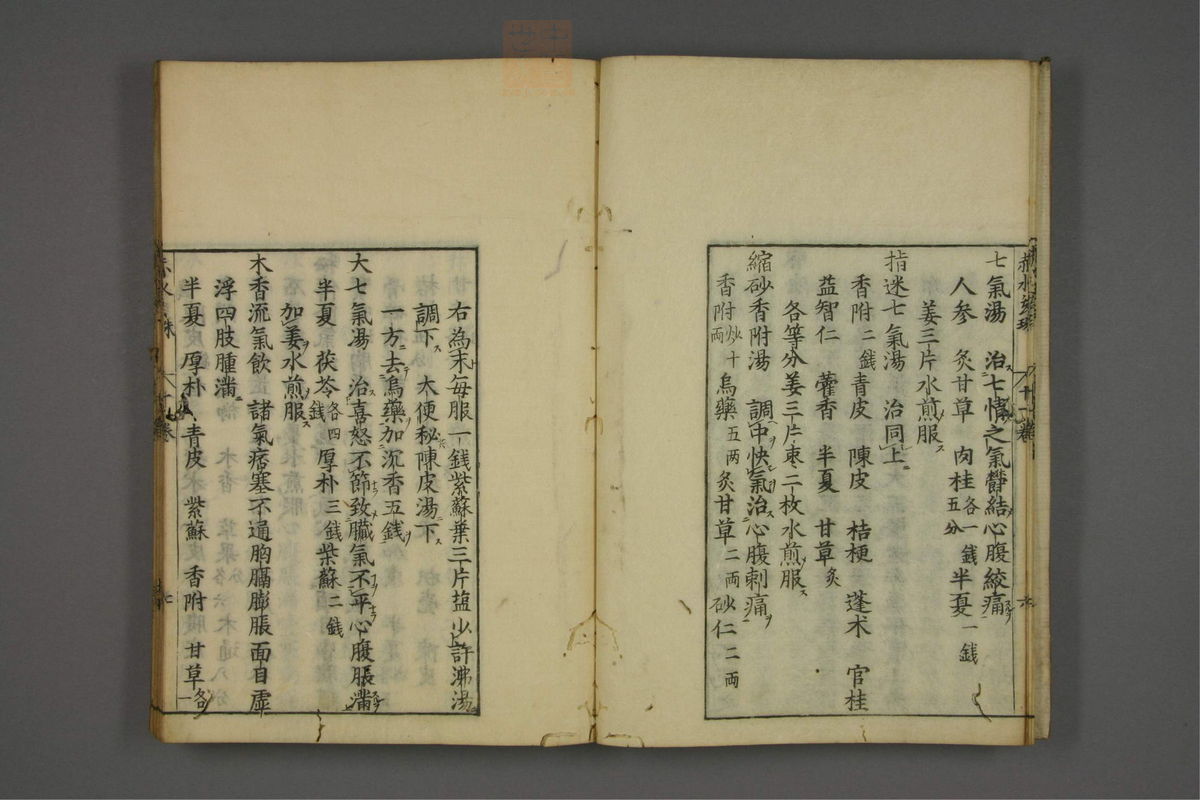 七氣湯　治七情之氣欝結心腹絞痛
人參　炙甘草　肉桂各一錢五分　半夏一錢
姜三片水煎服
指迷七氣湯　治同上
香附二錢　青皮　陳皮　桔梗　蓬术　官桂
益智仁　藿香　半夏　甘草炙
各等分姜三片枣二枚水煎服
縮砂香附湯　調中快氣治心腹刺痛
香附炒十両　烏藥五両　炙甘草二両　砂仁二両
右為末每服一錢紫蘇葉三片塩少許沸湯
調下　大便秘陳皮湯下
一方去烏藥加沉香五錢
大七氣湯　治喜怒不節致臟氣不平心腹脹滿
半夏　茯苓各四錢　厚朴三錢　紫蘇二錢
加姜水煎服
木香流氣飲　諸氣痞塞不通胸膈膨脹面目虛
浮四肢腫滿
半夏　厚朴　青皮　紫蘇　香附　甘草各一